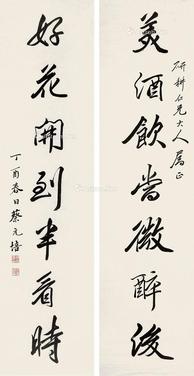 研耕仁兄大人属正
美酒飲當微醉後
好花開到半看時
丁酉春日蔡元培